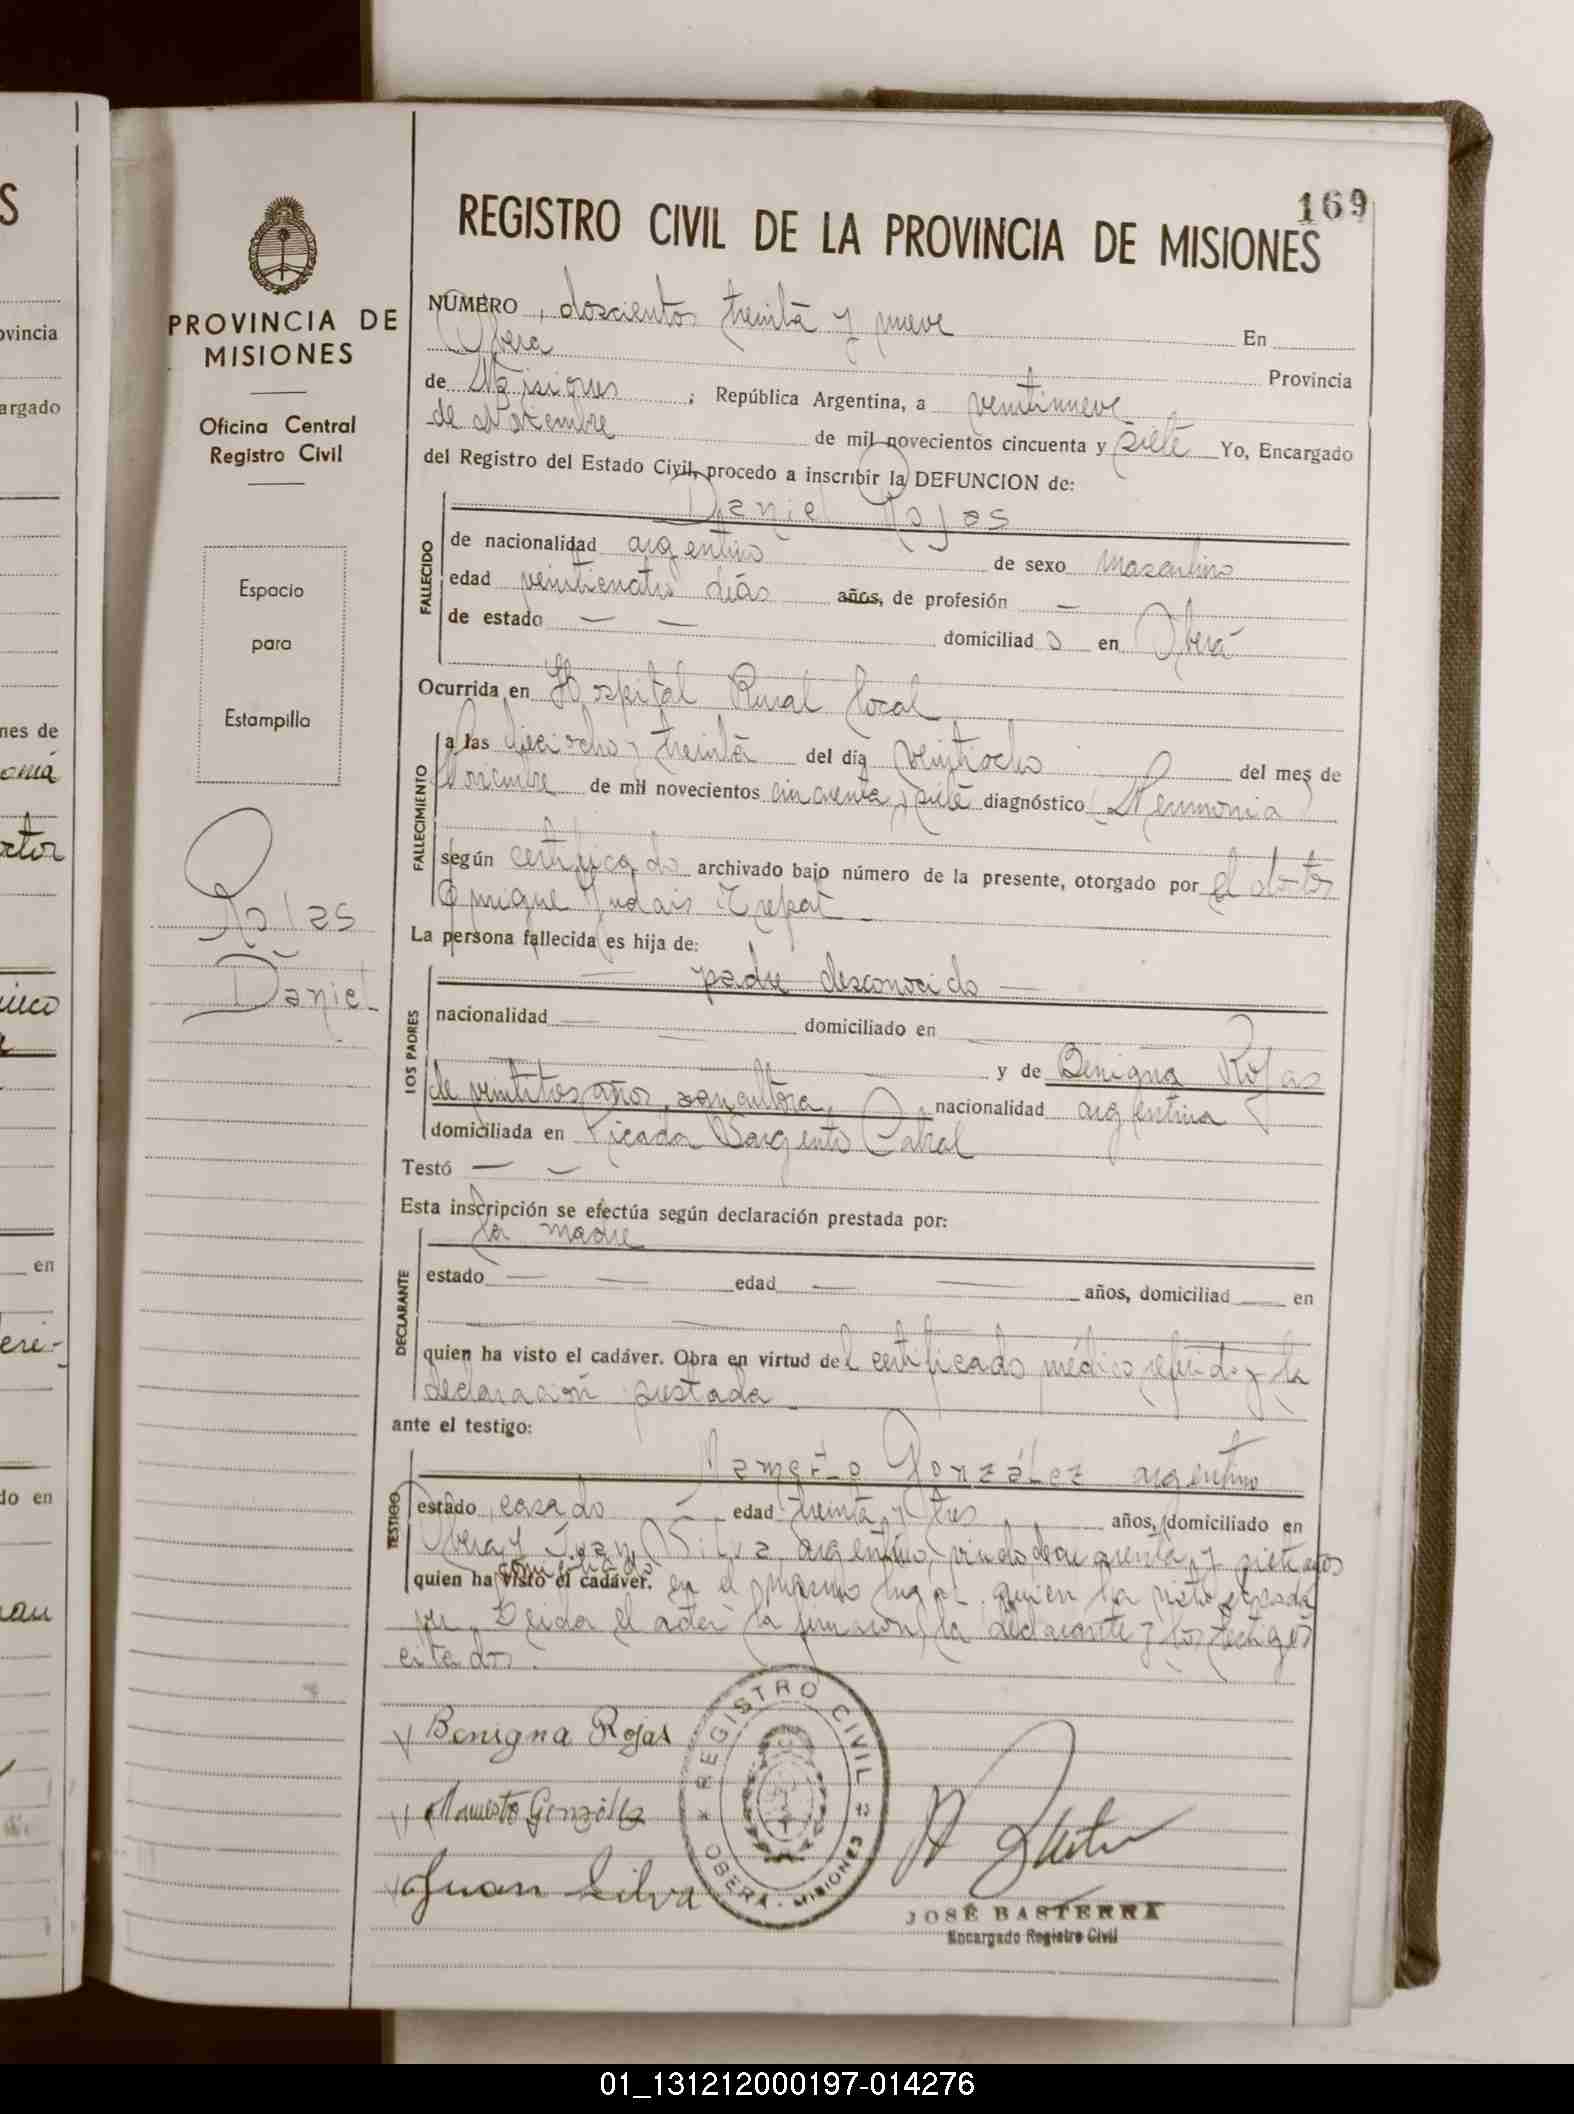 169
REGISTRO CIVIL DE LA PROVINCIA DE MISIONES
PROVINCIA DE
MISIONES
Oficina Central
Registro Civil
Espacio
para
Estampilla
Rojas
Daniel
NÚMERO, doscientos treinta y nueve En
Oberá Provincia
de Misiones ; República Argentina, a veintinueve
de Noviembre de mil novecientos cincuenta y siete Yo, Encargado
del Registro del Estado Civil, procedo a inscribir la DEFUNCION de:
Daniel Rojas
FALLECIDO
de nacionalidad argentino de sexo masculino
edad veinticuatro días años, de profesión —
de estado — — domiciliado en Oberá
Ocurrida en Hospital Rural local
FALLECIMIENTO
a las dieciocho y treinta del día veintiocho del mes de
Noviembre de mil novecientos cincuenta y siete diagnóstico (Neumonia)
según certificado archivado bajo número de la presente, otorgado por el doctor
Enrique
La persona fallecida es hija de:
LOS PADRES
— padre desconocido —
nacionalidad — domiciliado en —
y de Benigna Rojas
de veintitres años, agricultora, nacionalidad argentina
domiciliada en Picada Sargento Cabral
Testó — —
Esta inscripción se efectúa según declaración prestada por:
la madre
DECLARANTE
estado — — edad — — años, domiciliad — en
quien ha visto el cadáver. Obra en virtud del certificado médico referido y la
declaración prestada
ante el testigo:
TESTIGO
Mamerto González argentino
estado casado edad treinta y tres años, domiciliado en
Oberá y Juan Silva argentino, viudo, de cuarenta y siete años
domiciliado
quien ha visto el cadáver. en el mismo lugar. quien ha visto
Leida el acta la firmaron, la declarante y los testigos
citados.
Benigna Rojas
Mamerto González
Juan Silva
REGISTRO CIVIL
OBERA - MISIONES
JOSÉ BASTERRA
Encargado Registro Civil
S
ovincia
argado
nes de
en
do en
01_131212000197-014276